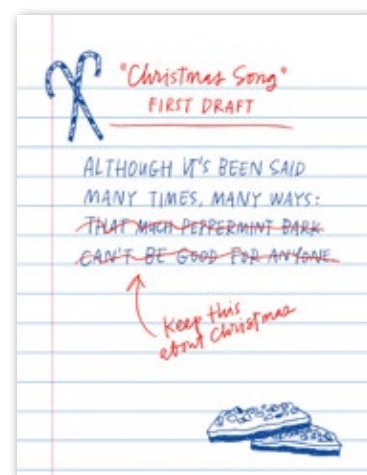 "Christmas Song"
FIRST DRAFT
ALTHOUGH IT'S BEEN SAID
MANY TIMES, MANY WAYS:
THAT MUCH PEPPERMINT BARK
CAN'T BE GOOD FOR ANYONE
Keep this
about Christmas